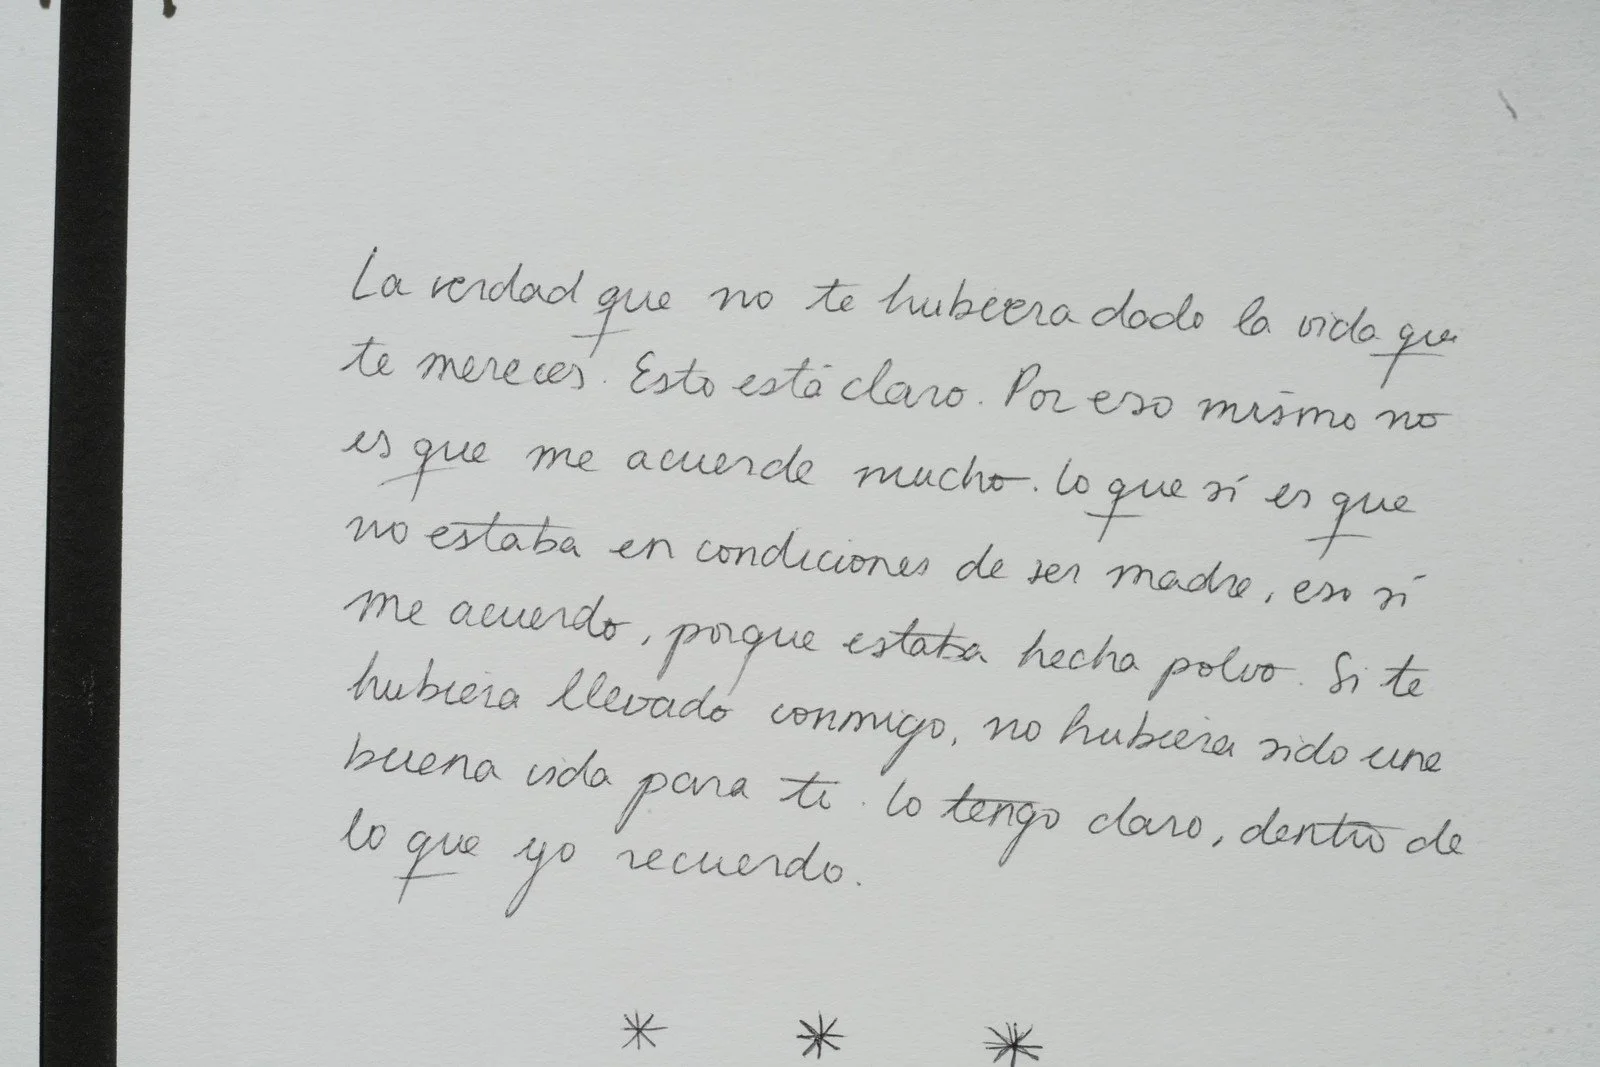 La verdad que no te hubiera dado la vida que
te mereces. Esto está claro. Por eso mismo no
es que me acuerde mucho. Lo que sí es que
no estaba en condiciones de ser madre, eso sí
me acuerdo, porque estaba hecha polvo. Si te
hubiera llevado conmigo, no hubiera sido una
buena vida para ti. Lo tengo claro, dentro de
lo que yo recuerdo.
* * *